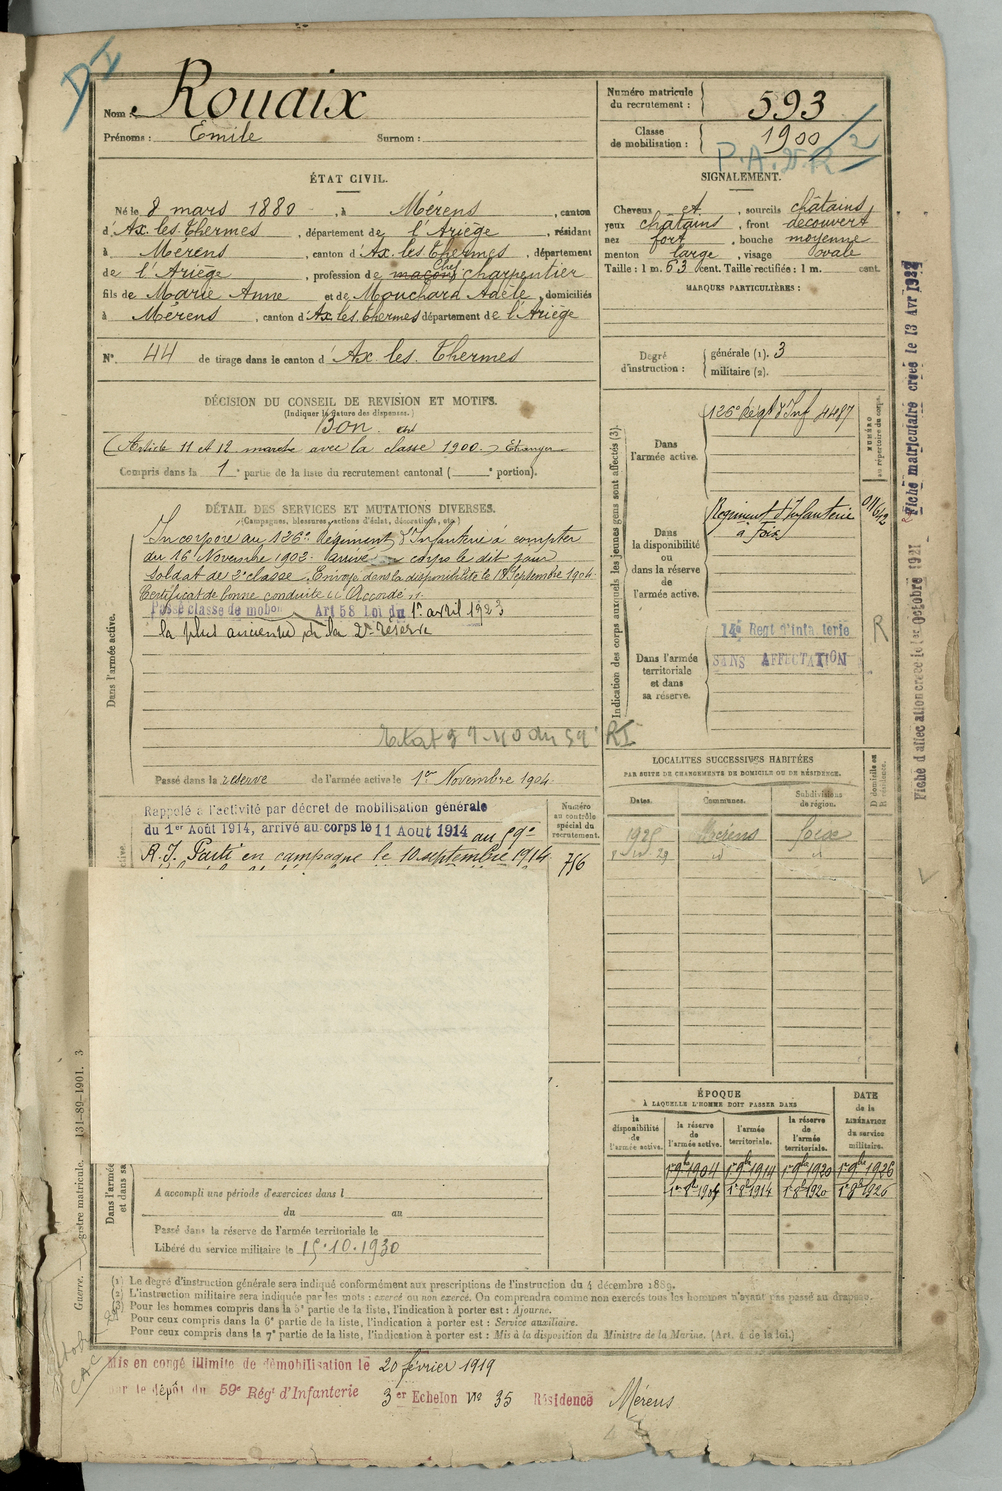 DI
Nom : Rouaix
Prénoms : Emile Surnom :
Numéro matricule du recrutement : 593
Classe de mobilisation : 1900
P.A.
ÉTAT CIVIL.
Né le 8 mars 1880, à Mérens, canton
d'Ax les Thermes, département de l'Ariège, résidant
à Mérens, canton d'Ax les Thermes, département
de l'Ariège, profession de maçon Chef charpentier
fils de Marie Anne et de Mouchard Adèle, domiciliés
à Mérens, canton d'Ax les Thermes département de l'Ariège
N° 44 de tirage dans le canton d'Ax les Thermes
SIGNALEMENT.
Cheveux et, sourcils châtains,
yeux châtains, front découvert
nez fort, bouche moyenne
menton large, visage ovale
Taille : 1 m. 53 cent. Taille rectifiée : 1 m. cent.
MARQUES PARTICULIÈRES :
Degré d'instruction : générale (1). 3
militaire (2).
DÉCISION DU CONSEIL DE REVISION ET MOTIFS.
(Indiquer la nature des dispenses.)
Bon
(Article 11 et 12 marche avec la classe 1900.) Etranger
Compris dans la 1e partie de la liste du recrutement cantonal ( e portion).
DÉTAIL DES SERVICES ET MUTATIONS DIVERSES.
(Campagnes, blessures, actions d'éclat, décorations, etc.)
Dans l'armée active.
Incorporé au 126e Régiment d'Infanterie à compter
du 16 Novembre 1902. arrivé au corps le dit jour
soldat de 2e classe. Envoyé dans la disponibilité le 18 Septembre 1904.
Certificat de bonne conduite "Accordé".
Passé classe de mobon Art 58 Loi du 1er avril 1923
la plus ancienne de la 2e Réserve
RI
Passé dans la réserve de l'armée active le 1er Novembre 1904.
Rappelé à l'activité par décret de mobilisation générale
du 1er Août 1914, arrivé au corps le 11 Aout 1914 au 59e
R.I. Parti en campagne le 10 septembre 1914
Numéro au contrôle spécial du recrutement.
756
Indication des corps auxquels les jeunes gens sont affectés (3).
Dans l'armée active.
126e Régt d'Inf 4487
NUMÉRO au répertoire du corps.
Dans la disponibilité ou dans la réserve de l'armée active.
Régiment d'Infanterie
à Foix
Dans l'armée territoriale et dans sa réserve.
14e Regt d'infanterie
SANS AFFECTATION
R
LOCALITÉS SUCCESSIVES HABITÉES
PAR SUITE DE CHANGEMENTS DE DOMICILE OU DE RÉSIDENCE.
Dates. Communes. Subdivisions de région. D domicile ou R résidence.
1925 Mérens Foix
ÉPOQUE
À LAQUELLE L'HOMME DOIT PASSER DANS
la disponibilité de l'armée active.
la réserve de l'armée active.
l'armée territoriale.
la réserve de l'armée territoriale.
DATE de la LIBÉRATION du service militaire.
1er 9bre 1904 1er 9bre 1914 1er 9bre 1920 1er 9bre 1926
1er 8bre 1904 1er 8bre 1914 1er 8bre 1920 1er 8bre 1926
A accompli une période d'exercices dans l
du au
Passé dans la réserve de l'armée territoriale le
Libéré du service militaire le 15.10.1930
(1) Le degré d'instruction générale sera indiqué conformément aux prescriptions de l'instruction du 4 décembre 1889.
(2) L'instruction militaire sera indiquée par les mots : exercé ou non exercé. On comprendra comme non exercés tous les hommes n'ayant pas passé au drapeau.
(3) Pour les hommes compris dans la 5e partie de la liste, l'indication à porter est : Ajourné.
Pour ceux compris dans la 6e partie de la liste, l'indication à porter est : Service auxiliaire.
Pour ceux compris dans la 7e partie de la liste, l'indication à porter est : Mis à la disposition du Ministre de la Marine. (Art. 4 de la loi.)
Mis en congé illimité de démobilisation le 20 février 1919
le dépôt du 59e Régt d'Infanterie 3er Echelon No 35 Résidence Mérens
Guerre. — gistre matricule. — 131-89-1901. 3
Fiche matriculaire créée le 13 Avr
Fiche d'affectation créée le 1er Octobre 1921